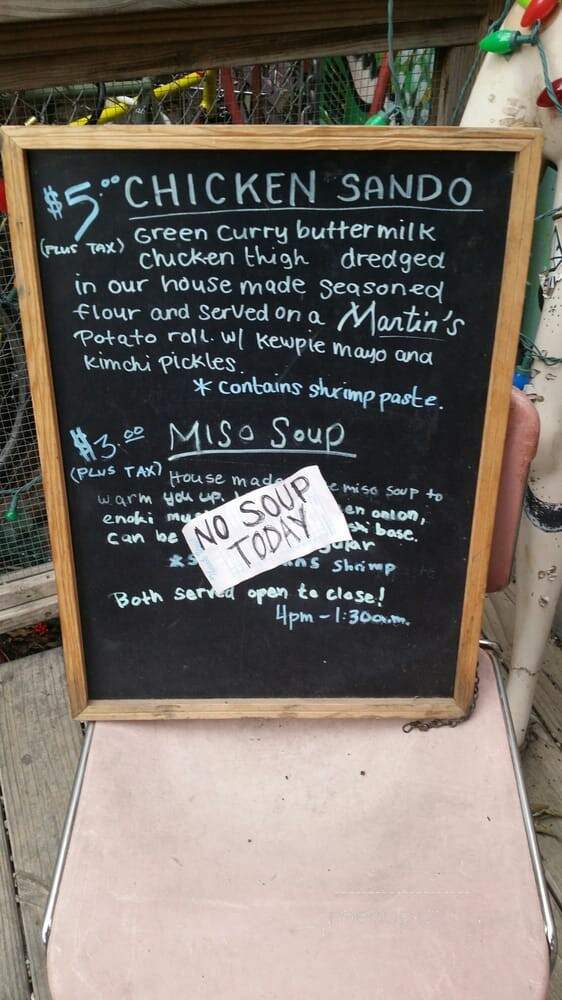 $5.00 CHICKEN SANDO
(PLUS TAX) Green Curry buttermilk
chicken thigh dredged
in our house made seasoned
flour and served on a Martin's
Potato roll. w/ kewpie mayo and
Kimchi pickles.
* contains shrimp paste.
$3.00 MISO SOUP
(PLUS TAX) House made miso soup to
warm you up.
enoki en onion,
can be base.
NO SOUP
TODAY
Shrimp
Both served open to close!
4pm - 1:30a.m.